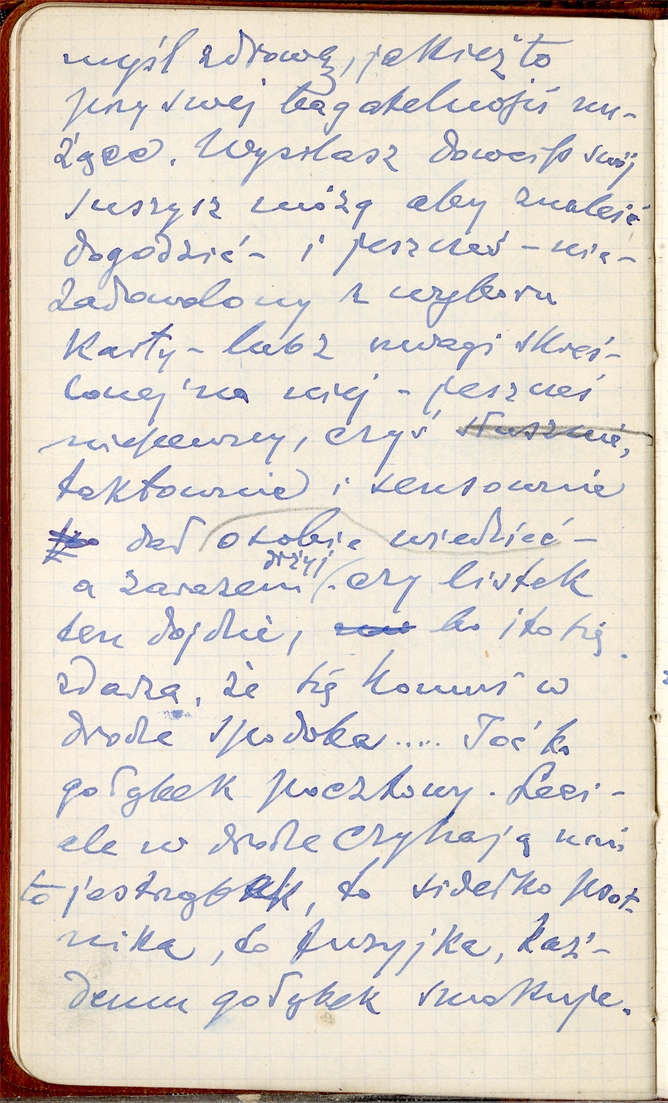 myśl zdrową, jakież to
przy swej bagatelności nu-
żące. Wysilasz dowcip swój
suszysz mózg aby znaleść
dogodzić - i jeszcześ - nie-
zadowolony z wyboru
karty - lub z uwagi skreś-
lonej na niej - jeszcześ
niepewny, czyś słusznie,
taktownie i sensownie
dał osobie wiedzieć -
a zarazem drżyj czy listek
ten dojdzie, bo i to się
zdarza, że się komuś w
drodze spodoba..... Toć to
gołąbek pocztowy. Leci -
ale w drodze czyhają nań
to jastrząbek, to sidełko psot-
nika, to fuzyjka, każ-
demu gołąbek smakuje.